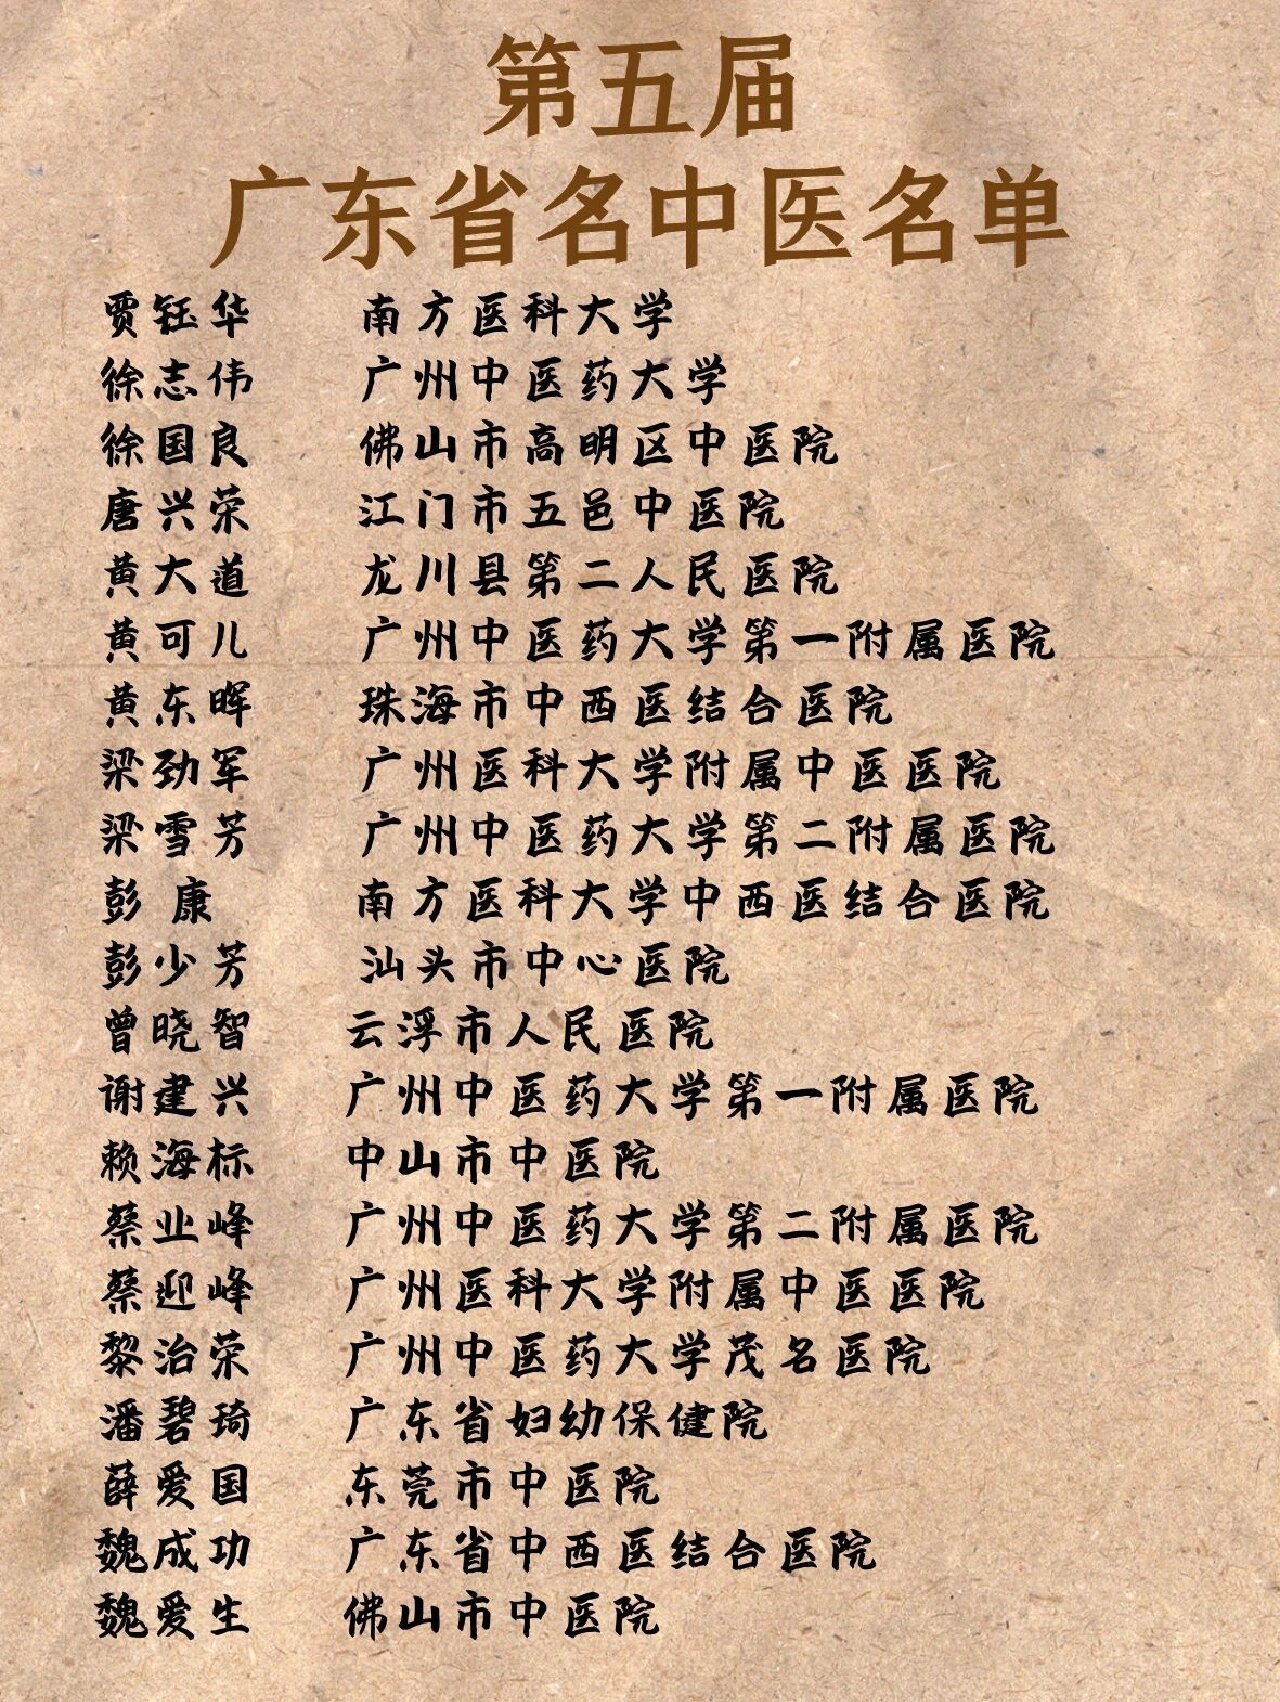 第五届
广东省名中医名单
贾钰华 南方医科大学
徐志伟 广州中医药大学
徐国良 佛山市高明区中医院
唐兴荣 江门市五邑中医院
黄大道 龙川县第二人民医院
黄可儿 广州中医药大学第一附属医院
黄东晖 珠海市中西医结合医院
梁劲军 广州医科大学附属中医医院
梁雪芳 广州中医药大学第二附属医院
彭 康 南方医科大学中西医结合医院
彭少芳 汕头市中心医院
曾晓智 云浮市人民医院
谢建兴 广州中医药大学第一附属医院
赖海标 中山市中医院
蔡业峰 广州中医药大学第二附属医院
蔡迎峰 广州医科大学附属中医医院
黎治荣 广州中医药大学茂名医院
潘碧琦 广东省妇幼保健院
薛爱国 东莞市中医院
魏成功 广东省中西医结合医院
魏爱生 佛山市中医院